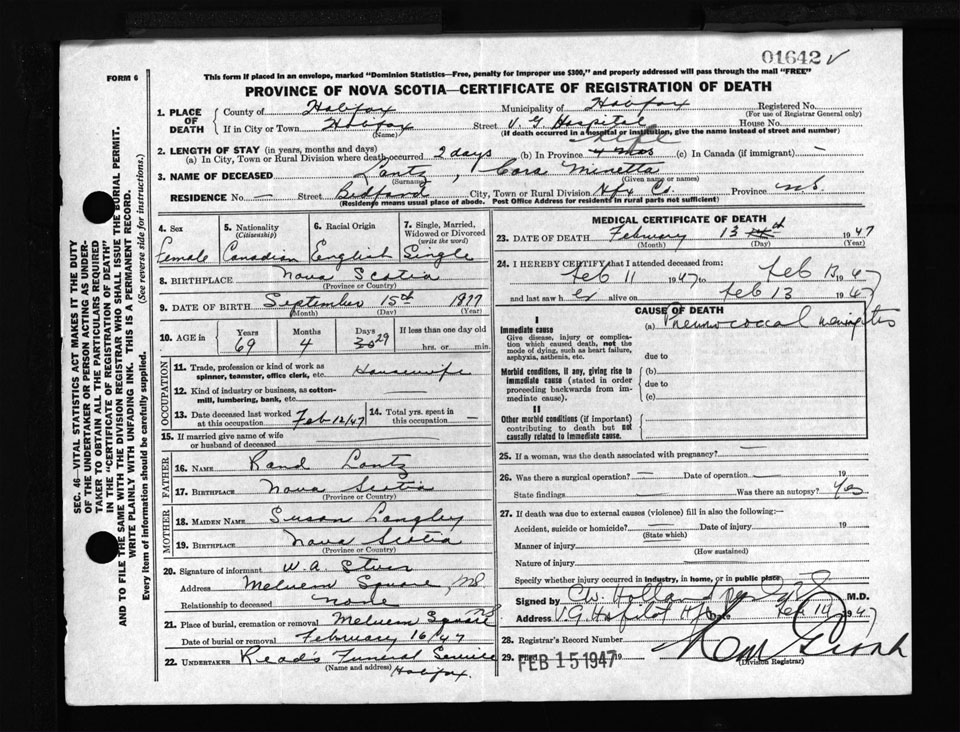 01642 ✓
FORM 6
This form if placed in an envelope, marked "Dominion Statistics—Free, penalty for improper use $300," and properly addressed will pass through the mail "FREE"
PROVINCE OF NOVA SCOTIA—CERTIFICATE OF REGISTRATION OF DEATH
1. PLACE OF DEATH
County of Halifax Municipality of Halifax Registered No.
(For use of Registrar General only)
If in City or Town Halifax Street V. G Hospital House No.
(Name) (If death occurred in a hospital or institution, give the name instead of street and number)
2. LENGTH OF STAY (in years, months and days) Life
(a) In City, Town or Rural Division where death occurred 2 days (b) In Province 4 mos (c) In Canada (if immigrant) —
3. NAME OF DECEASED Lantz, Cora Minetta
(Surname) (Given name or names)
RESIDENCE No. — Street Bedford City, Town or Rural Division Hfx Co. Province N.S.
(Residence means usual place of abode. Post Office Address for residents in rural parts not sufficient)
4. Sex
Female
5. Nationality
(Citizenship)
Canadian
6. Racial Origin
English
7. Single, Married, Widowed or Divorced
(write the word)
Single
8. BIRTHPLACE Nova Scotia
(Province or Country)
9. DATE OF BIRTH September 15th 1877
(Month) (Day) (Year)
10. AGE in Years Months Days If less than one day old
69 4 30 29 hrs. or min.
OCCUPATION
11. Trade, profession or kind of work as spinner, teamster, office clerk, etc. Housewife
12. Kind of industry or business, as cotton-mill, lumbering, bank, etc.
13. Date deceased last worked at this occupation Feb 12/47
14. Total yrs. spent in this occupation —
15. If married give name of wife or husband of deceased
FATHER
16. NAME Rand Lantz
17. BIRTHPLACE Nova Scotia
(Province or Country)
MOTHER
18. MAIDEN NAME Susan Langley
19. BIRTHPLACE Nova Scotia
(Province or Country)
20. Signature of informant W. A.
Address Melvern Square, NS
Relationship to deceased none
21. Place of burial, cremation or removal Melvern Square NS
Date of burial or removal February 16/47
22. UNDERTAKER Read's Funeral Service
(Name and address) Halifax.
MEDICAL CERTIFICATE OF DEATH
23. DATE OF DEATH February 13th 1947
(Month) (Day) (Year)
24. I HEREBY CERTIFY that I attended deceased from:
Feb 11 1947 to Feb 13 1947
and last saw her alive on Feb 13 1947
CAUSE OF DEATH
I
Immediate cause (a) Pneumococcal meningitis
Give disease, injury or complication which caused death, not the mode of dying, such as heart failure, asphyxia, asthenia, etc.
due to
Morbid conditions, if any, giving rise to immediate cause (stated in order proceeding backwards from immediate cause).
(b)
due to
(c)
II
Other morbid conditions (if important) contributing to death but not causally related to immediate cause.
25. If a woman, was the death associated with pregnancy? —
26. Was there a surgical operation? — Date of operation 19
State findings — Was there an autopsy? Yes
27. If death was due to external causes (violence) fill in also the following:—
Accident, suicide or homicide? — Date of injury 19
(State which)
Manner of injury
(How sustained)
Nature of injury
Specify whether injury occurred in industry, in home, or in public place
Signed by C.W. Holland M.D.
Address V.G Hospital Hfx Date Feb 14 1947
28. Registrar's Record Number
29. Filed FEB 15 1947 19
(Division Registrar)
SEC. 46—VITAL STATISTICS ACT MAKES IT THE DUTY
OF THE UNDERTAKER OR PERSON ACTING AS UNDER-
TAKER TO OBTAIN ALL THE PARTICULARS REQUIRED
IN THE "CERTIFICATE OF REGISTRATION OF DEATH"
AND TO FILE THE SAME WITH THE DIVISION REGISTRAR WHO SHALL ISSUE THE BURIAL PERMIT.
WRITE PLAINLY WITH UNFADING INK. THIS IS A PERMANENT RECORD.
Every item of information should be carefully supplied. (See reverse side for instructions.)